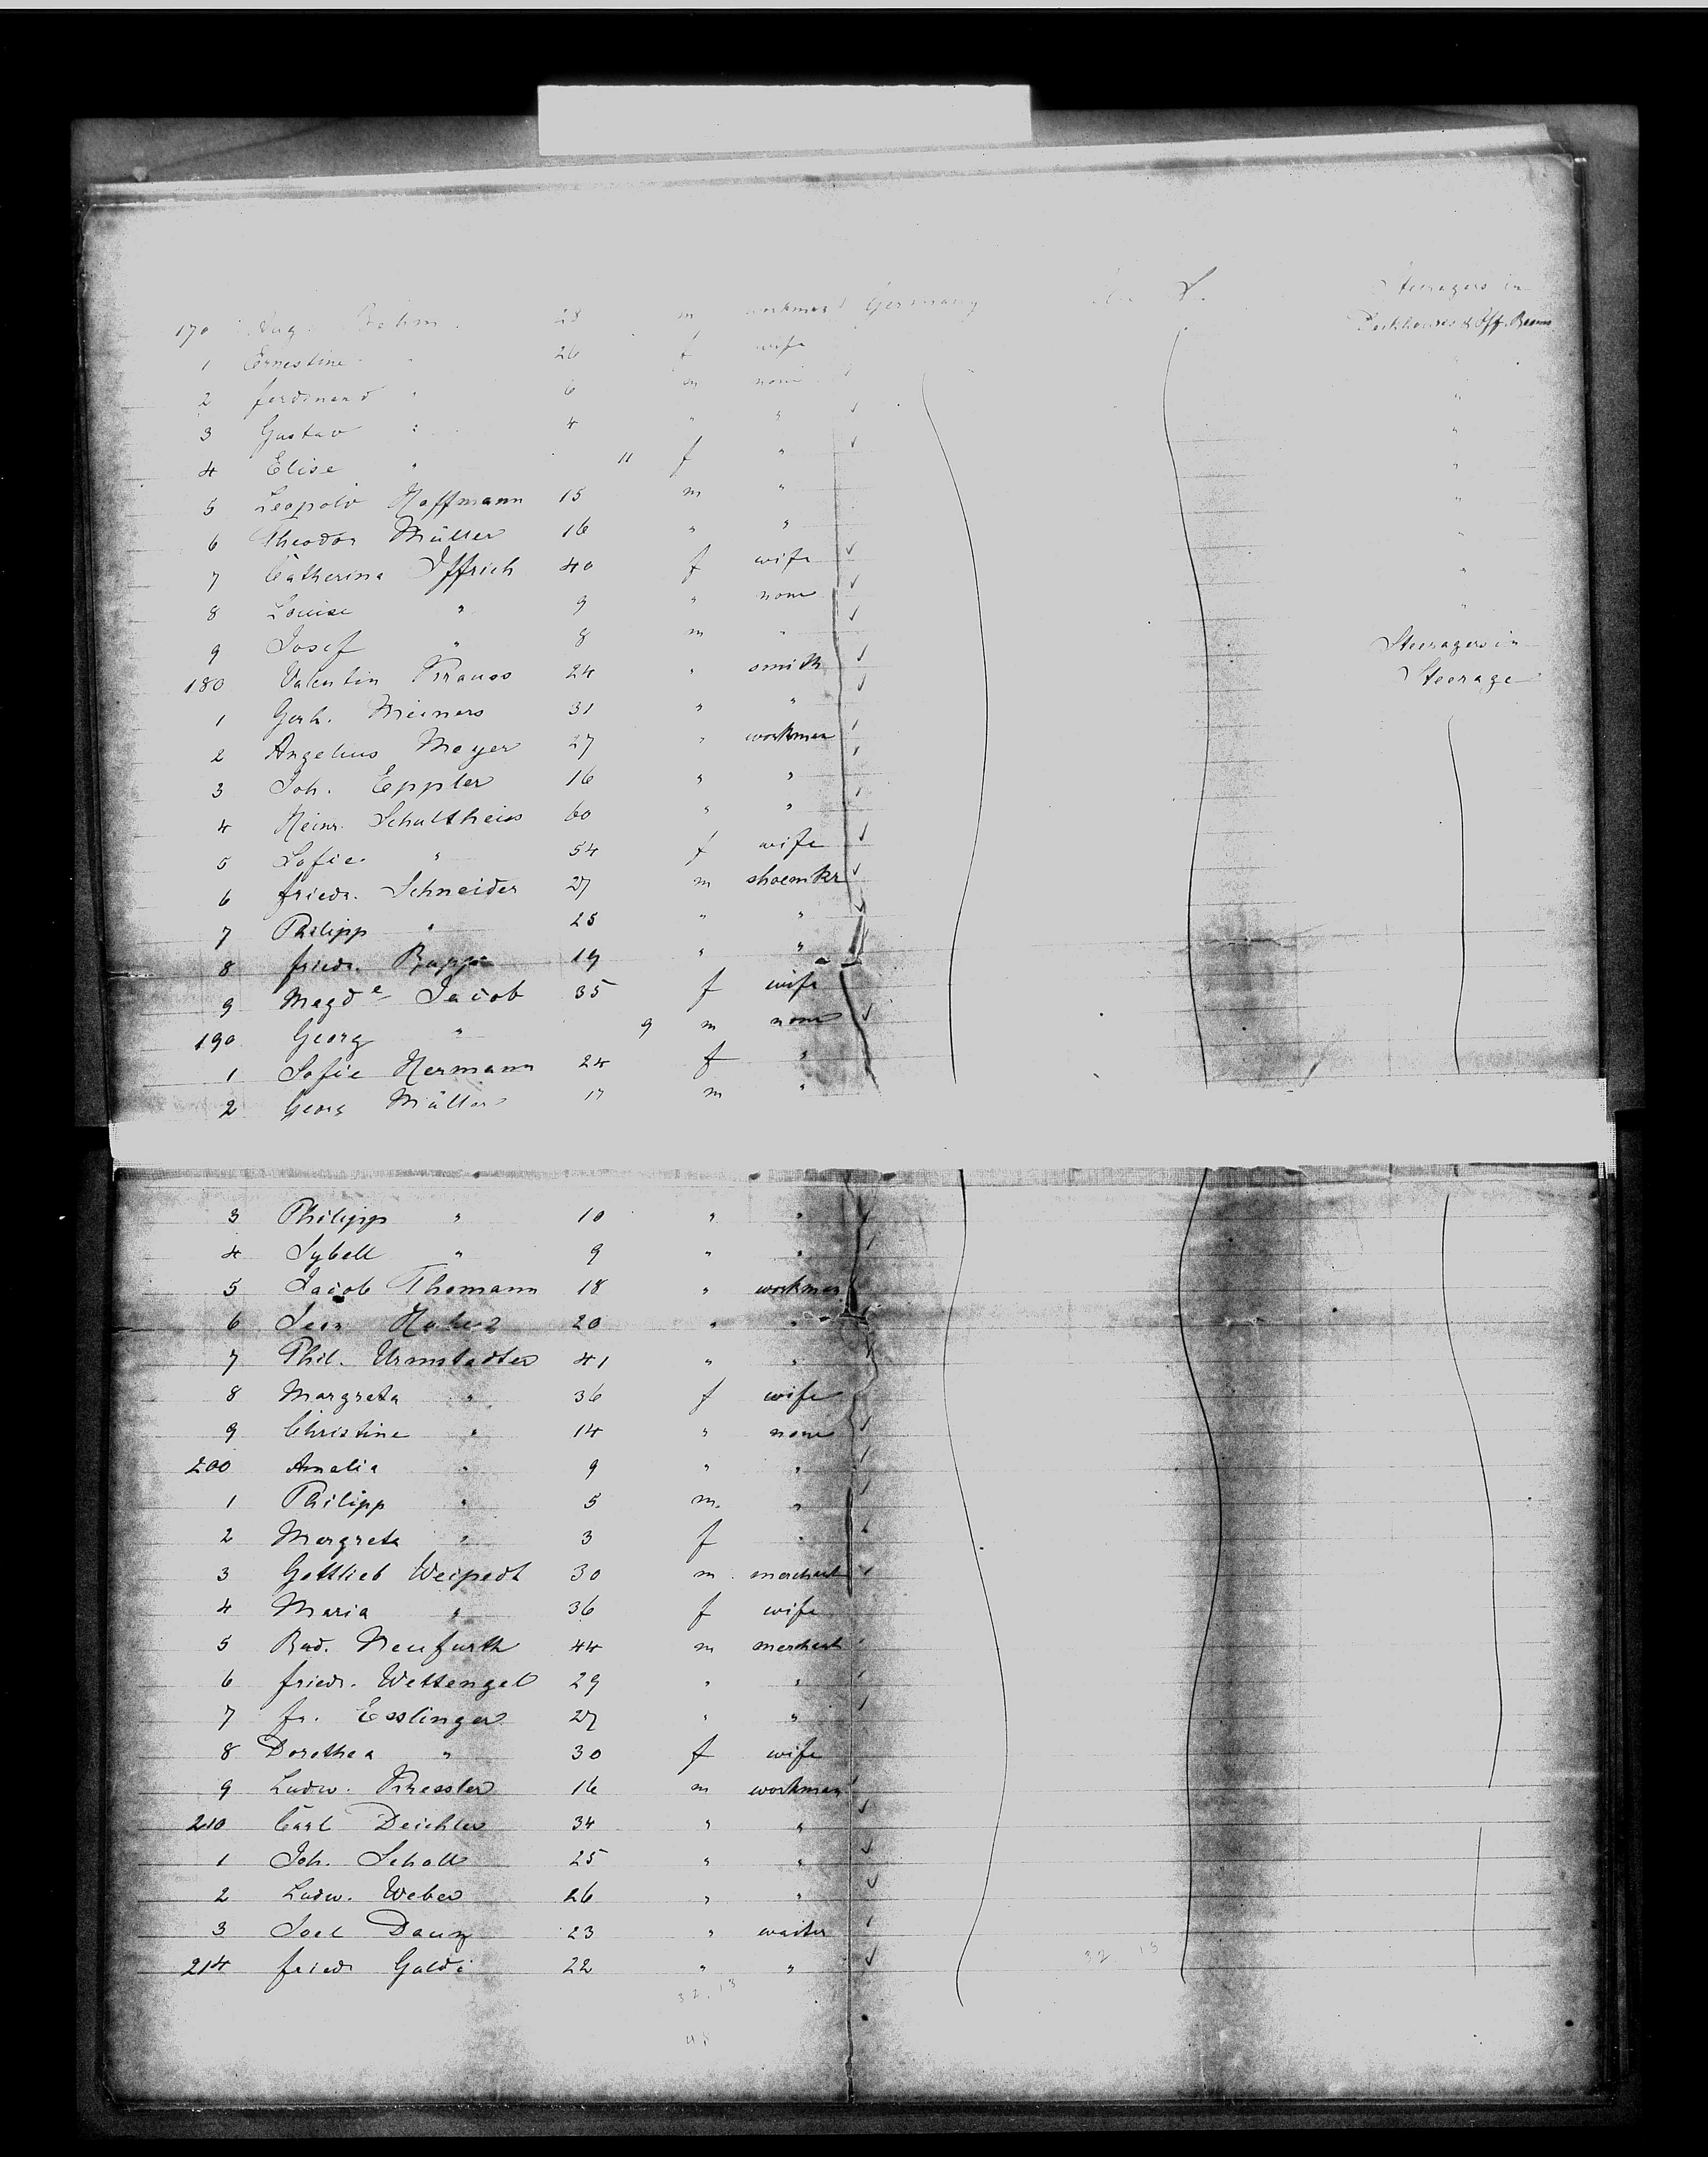 170 Aug. Behm 28 m workman Germany Steeragers in
1 Ernestine " 26 f wife Deckhouses & Off. Rooms
2 ferdinand " 6 m none "
3 Gustav " 4 " " "
4 Elise " 11 f " "
5 Leopold Hoffmann 15 m " "
6 Theodor Müller 16 " " "
7 Catherina Iffrich 40 f wife "
8 Louise " 9 " none "
9 Josef " 8 m " Steeragers in
180 Valentin Krauss 24 " smith Steerage
1 Gerh. Meiners 31 " "
2 Angelius Meyer 27 " workman
3 Joh. Eppler 16 " "
4 Heinr. Schultheiss 60 " "
5 Sofie " 54 f wife
6 friedr. Schneider 27 m shoemkr
7 Philipp " 25 " "
8 friedr. Rapp 19 " "
9 Magd.e Jacob 35 f wife
190 Georg " 9 m none
1 Sofie Hermann 24 f "
2 Georg Müller 17 m "
3 Philipp " 10 " "
4 Sybell " 9 " "
5 Jacob Thomann 18 " workman
6 20 " "
7 Phil. Urmstadter 41 " "
8 Margreta " 36 f wife
9 Christine " 14 " none
200 Amalia " 9 " "
1 Philipp " 5 m. "
2 Margreta " 3 f "
3 Gottlieb Weipedt 30 m merchant
4 Maria " 36 f wife
5 Rud. Neufurth 44 m merchant
6 friedr. Wettengel 29 " "
7 fr. Esslinger 27 " "
8 Dorethea " 30 f wife
9 Ludw. Kressler 16 m workman
210 Carl Deichler 34 " "
1 Joh. Scholl 25 " "
2 Ludw. Weber 26 " "
3 Joel Daug 23 " waiter
214 friedr Goldi 22 " " 32 13
32.13